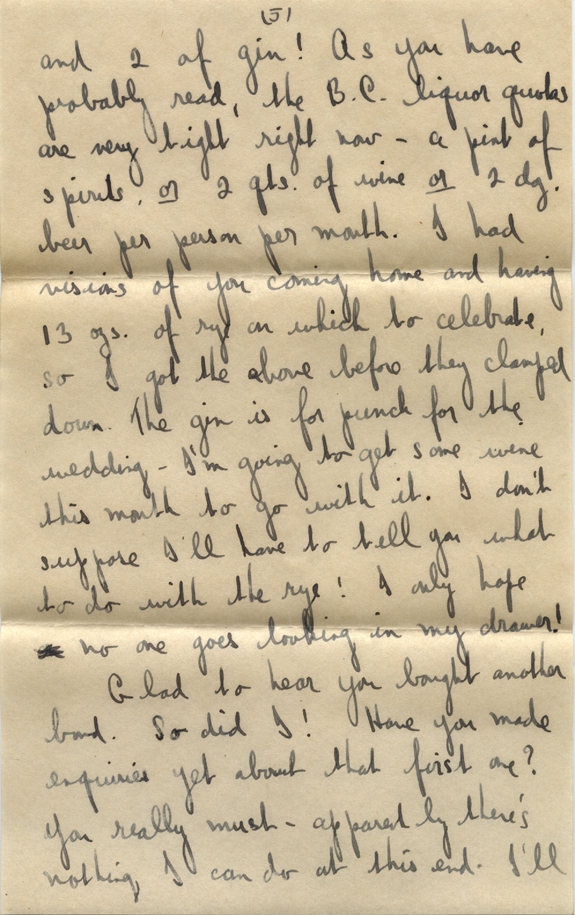 (5)
and 2 of gin! As you have
probably read, the B.C. liquor quotas
are very tight right now - a pint of
spirits, or 2 qts. of wine or 2 dz.
beer per person per month. I had
visions of you coming home and having
13 ozs. of rye on which to celebrate,
so I got the above before they clamped
down. The gin is for punch for the
wedding - I'm going to get some wine
this month to go with it. I don't
suppose I'll have to tell you what
to do with the rye! I only hope
no one goes looking in my drawer!
Glad to hear you bought another
bond. So did I! Have you made
enquiries yet about that first one?
You really must - apparently there's
nothing I can do at this end. I'll